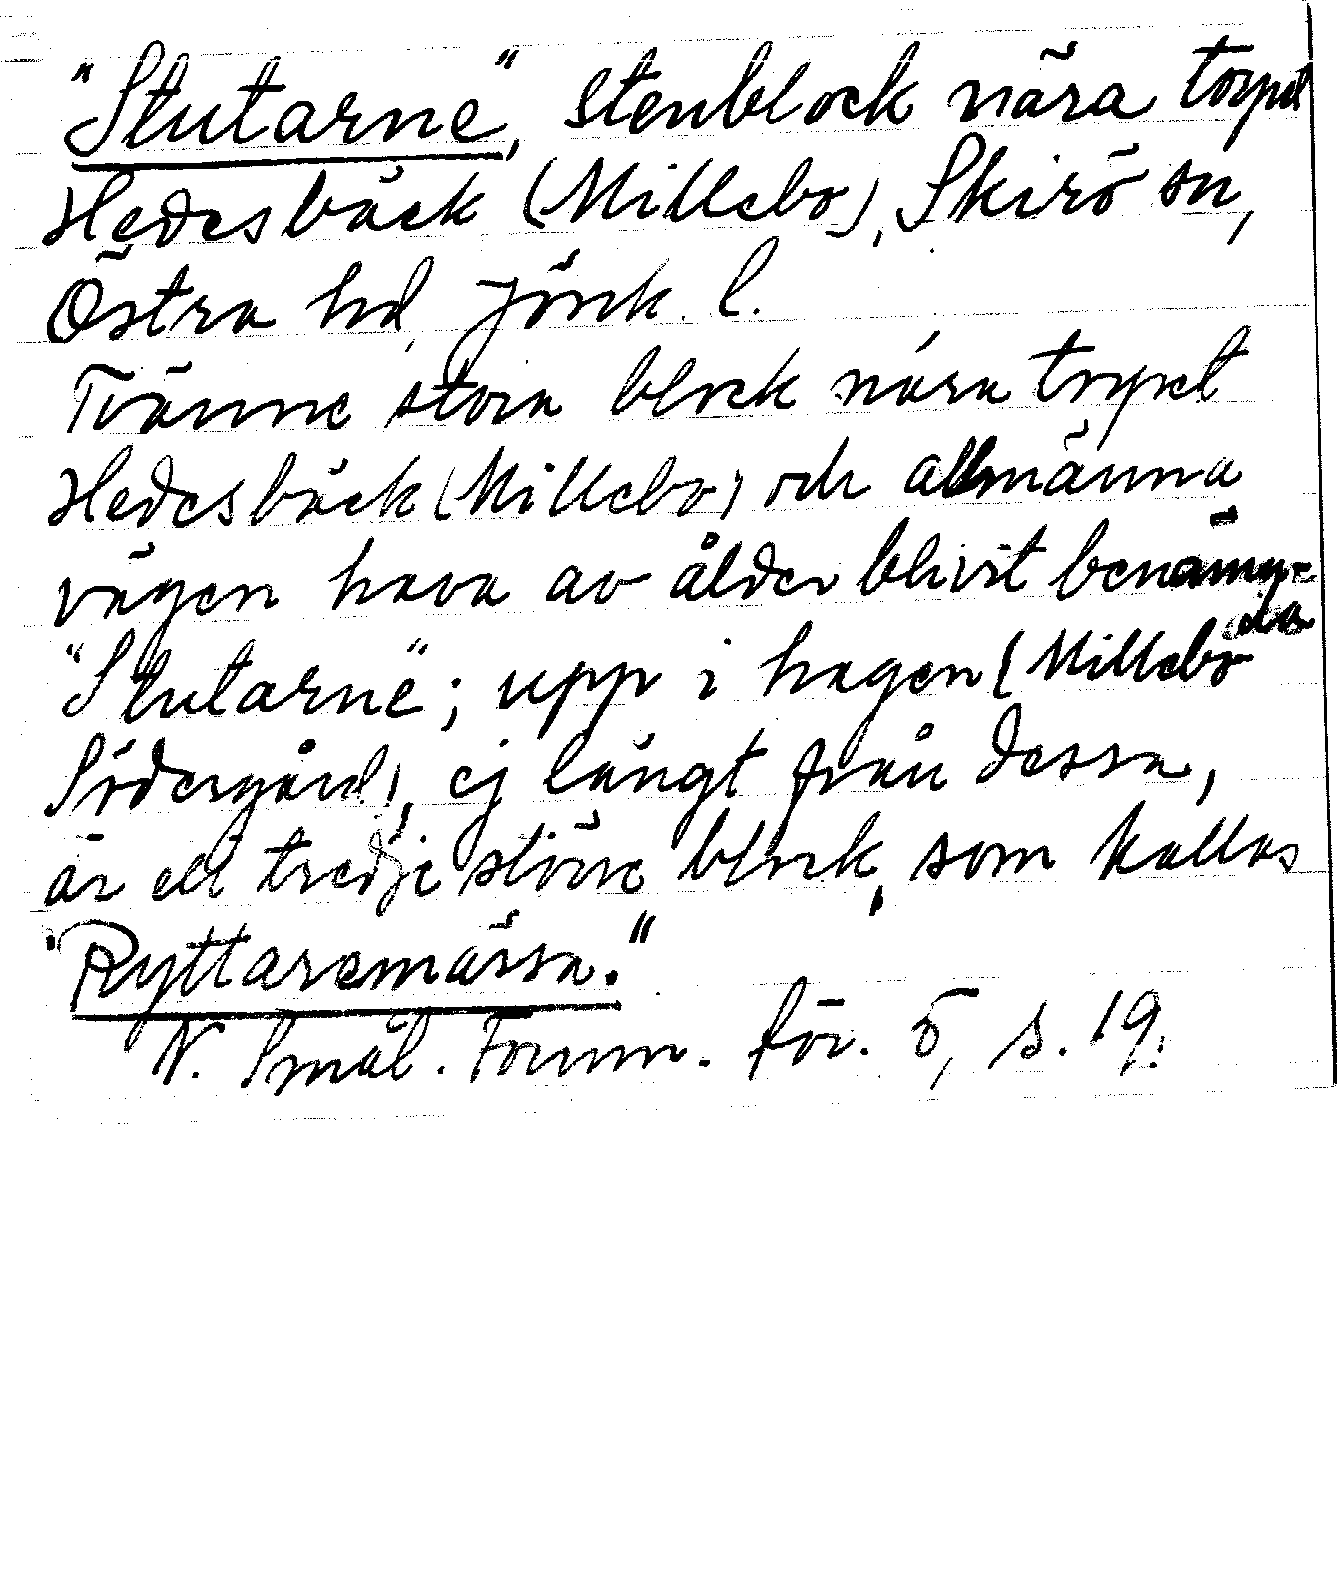 "Stutarne", stenblock nära torpet
Hedesbäck (Millebo), Skirö sn,
Östra hd, Jönk. l.
Tvänne stora block nära torpet
Hedesbäck (Millebo) och allmänna
vägen hava av ålder blivit benämn-
da
"Stutarne"; upp i hagen (Millebo
Södergård), ej långt från dessa,
är ett tredje större block, som kallas
"Ryttaremässa."
N. Smål. Fornm. för. 5, s. 19.